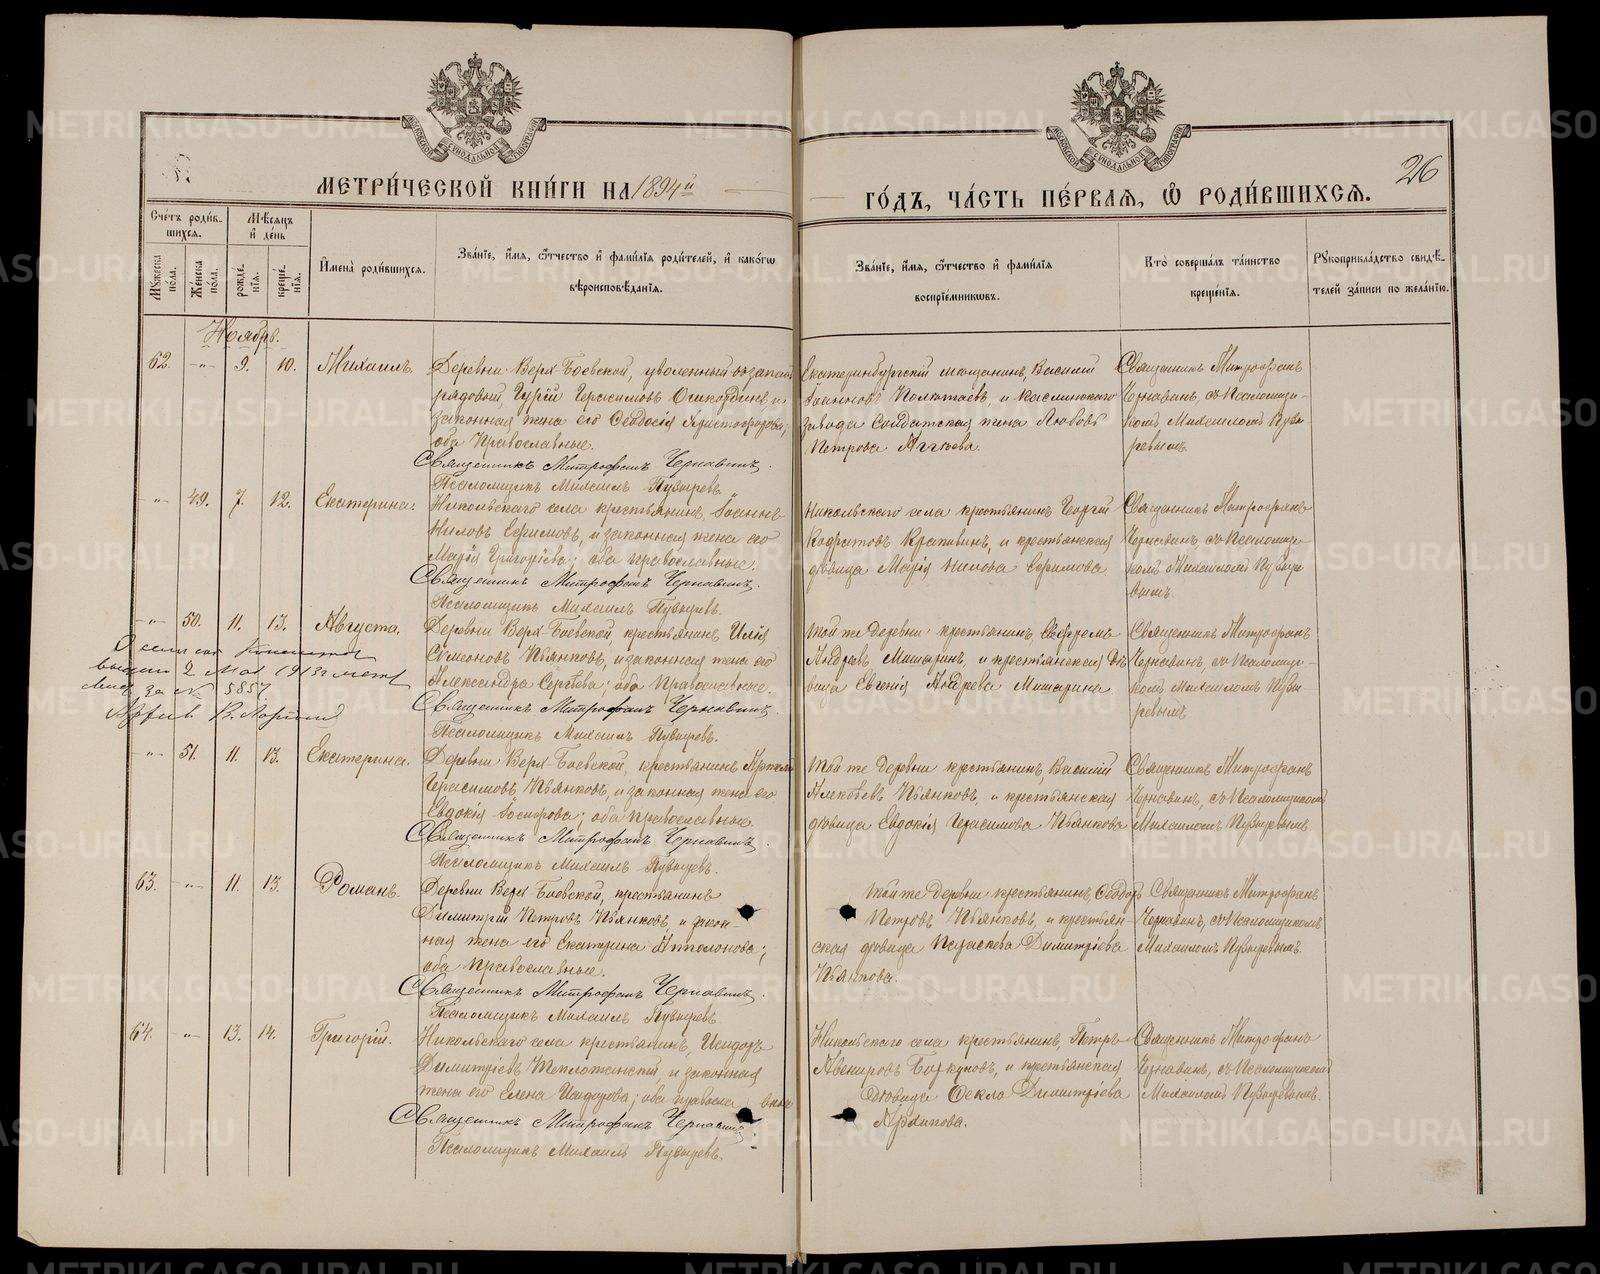 МЕТРИ́ЧЕСКОЙ КНИ́ГИ НА 1894й ГО́ДЪ, ЧА́СТЬ ПЕ́РВАЯ, Ѽ РОДИ́ВШИХСЯ.
26
Сче́тъ роди́вшихся.
Му́жеска по́ла.
Же́нска по́ла.
Мѣ́сяцъ и҆ де́нь
рожде́нїя.
креще́нїя.
И҆мена̀ роди́вшихся.
Зва́нїе, и҆́мя, ѻ҆́тчество и҆ фами́лїя роди́телей, и҆ како́гѡ
вѣроисповѣ́данїя.
Зва́нїе, и҆́мя, ѻ҆́тчество и҆ фами́лїя
воспрїе́мникѡвъ.
Кто̀ соверша́лъ та́инство
креще́нїя.
Рꙋкоприкла́дство свидѣ́телей за́писи по жела́нїю.
Ноябрь.
62. -"- 9. 10. Михаилъ.
Деревни Верх-Боевской, уволенный въ запасъ
рядовой, Гурій Герасимовъ и
законная жена его Ѳеодосія Христофорова;
оба Православные.
Священникъ Митрофанъ Чернавинъ.
Псаломщикъ Михаилъ Пузыревъ.
Екатеринбургскій мѣщанинъ, Василій
Іоанновъ Полютаевъ, и Каслинскаго
завода солдатская жена Любовь
Петрова
Священникъ Митрофанъ
Чернавинъ, съ Псаломщи-
комъ Михаиломъ Пузы-
ревымъ.
-"- 49. 7. 12. Екатерина.
Никольскаго села крестьянинъ, Іоаннъ
Ниловъ Ефимовъ, и законная жена его
Марія Григоріева; оба православные.
Священникъ Митрофанъ Чернавинъ.
Псаломщикъ Михаилъ Пузыревъ.
Никольскаго села крестьянинъ Георгій
Кодратовъ Крапивинъ, и крестьянская
дѣвица Марія Нилова Ефимова
Священникъ Митрофанъ
Чернавинъ, съ Псаломщи-
комъ Михаиломъ Пузыре-
вымъ.
-"- 50. 11. 13. Августа.
Деревни Верх-Боевской, крестьянинъ Илія
Симеоновъ Пьянковъ, и законная жена его
Александра Сергѣева; оба Православные.
Священникъ Митрофанъ Чернавинъ.
Псаломщикъ Михаилъ Пузыревъ.
Той же деревни крестьянинъ,
Андреевъ Мишаринъ, и крестьянская дѣ-
вица Евгенія Андреева Мишарина.
Священникъ Митрофанъ
Чернавинъ, съ Псаломщи-
комъ Михаиломъ Пузы-
ревымъ
2 Мая 1913 г.
за № 5557.
-"- 51. 11. 13. Екатерина.
Деревни Верх-Боевской, крестьянинъ
Герасимовъ Пьянковъ, и законная жена его
Евдокія Іосифова; оба православные.
Священникъ Митрофанъ Чернавинъ.
Псаломщикъ Михаилъ Пузыревъ.
Той же деревни крестьянинъ, Василій
Алексѣевъ Пьянковъ, и крестьянская
дѣвица Евдокія Герасимова Пьянкова
Священникъ Митрофанъ
Чернавинъ, съ Псаломщикомъ
Михаиломъ Пузыревымъ.
63. -"- 11. 13. Романъ.
Деревни Верх Боевской, крестьянинъ
Димитрій Петровъ Пьянковъ, и закон-
ная жена его Екатерина Аполлонова;
оба православные.
Священникъ Митрофанъ Чернавинъ.
Псаломщикъ Михаилъ Пузыревъ
Той же деревни крестьянинъ, Ѳеодоръ
Петровъ Пьянковъ, и крестьян-
ская дѣвица Параскева Димитріева
Пьянкова.
Священникъ Митрофанъ
Чернавинъ, съ Псаломщикомъ
Михаиломъ Пузыревымъ.
64. -"- 13. 14. Григорій.
Никольскаго села крестьянинъ, Исидоръ
Димитріевъ и законная
жена его Елена Исидорова; оба православные
Священникъ Митрофанъ Чернавинъ.
Псаломщикъ Михаилъ Пузыревъ.
Никольскаго села крестьянинъ, Петръ
Авенировъ и крестьянская
дѣвица Ѳекла Димитріева
Архипова.
Священникъ Митрофанъ
Чернавинъ, съ Псаломщикомъ
Михаиломъ Пузыревымъ.
METRIKI.GASO-URAL.RU